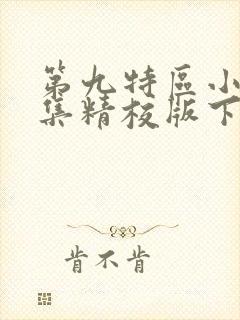 第九特區小
集精校版下
肯不肯